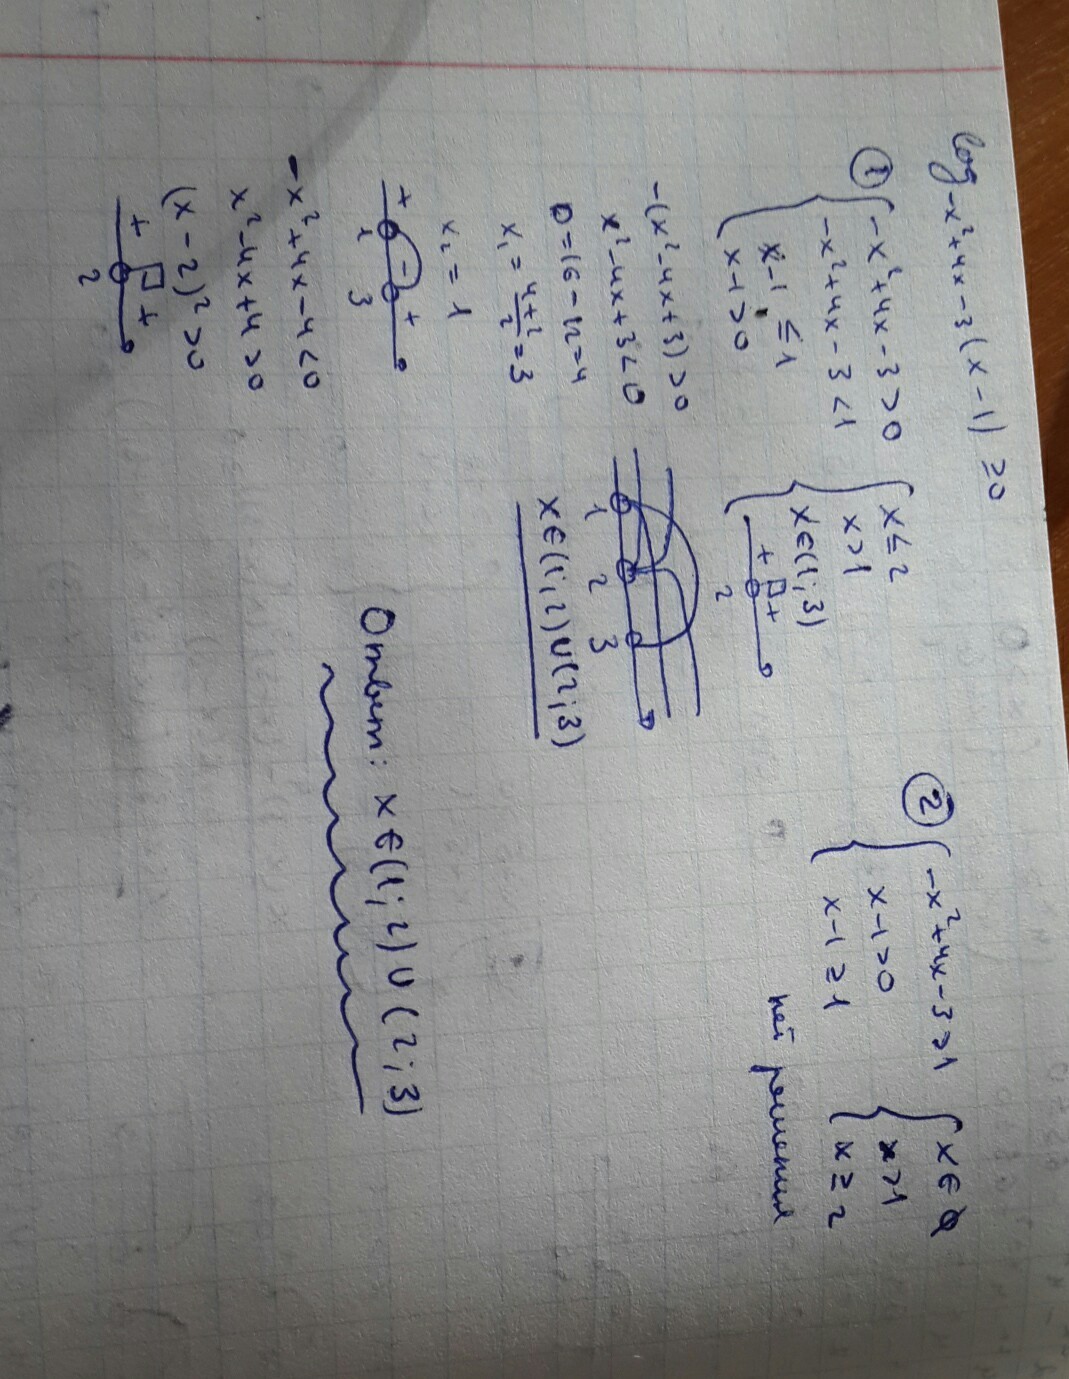 log -x²+4x-3 (x-1) ≥0
① { -x²+4x-3>0
-x²+4x-3<1
x-1≤1
x-1>0
{ x≤2
x>1
x∈(1;3)
+ +
2
-(x²-4x+3)>0
x²-4x+3<0
D=16-12=4
x₁=4+2/2=3
x₂=1
+ - +
1 3
-x²+4x-4<0
x²-4x+4>0
(x-2)²>0
+ +
2
1 2 3
x∈(1;2)∪(2;3)
② { -x²+4x-3>1
x-1>0
x-1≥1
{ x∈∅
x>1
x≥2
нет решения
Ответ: x∈(1;2)∪(2;3)